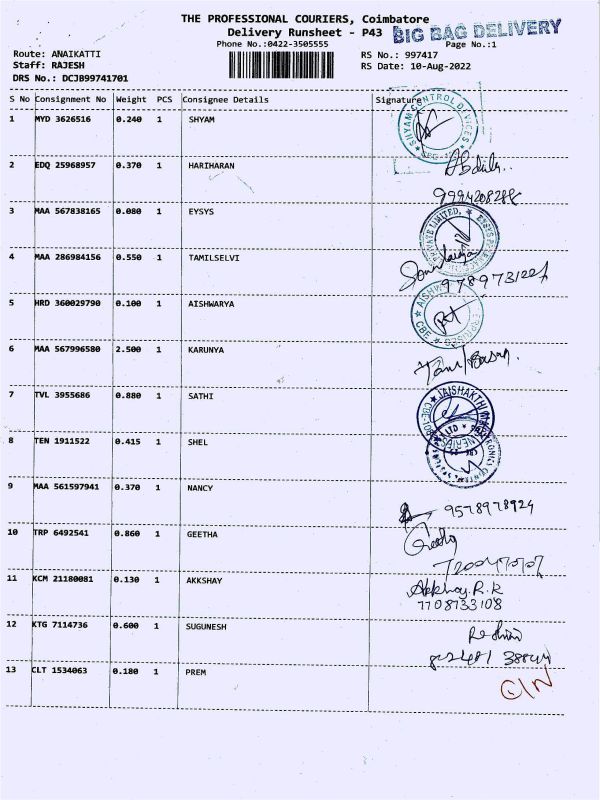 THE PROFESSIONAL COURIERS, Coimbatore
Delivery Runsheet - P43
BIG BAG DELIVERY
Phone No.:0422-3505555
Page No.:1
Route: ANAIKATTI
RS No.: 997417
Staff: RAJESH
RS Date: 10-Aug-2022
DRS No.: DCJB99741701
S No Consignment No Weight PCS Consignee Details Signature
1 MYD 3626516 0.240 1 SHYAM
SHYAM CONTROL DEVICES
2 EDQ 25968957 0.370 1 HARIHARAN
9994208288
3 MAA 567838165 0.080 1 EYSYS
PRIVATE LIMITED,
4 MAA 286984156 0.550 1 TAMILSELVI
5 HRD 360029790 0.100 1 AISHWARYA
CBE
6 MAA 567996580 2.500 1 KARUNYA
7 TVL 3955686 0.880 1 SATHI
JAISHAKTHI
8 TEN 1911522 0.415 1 SHEL
9 MAA 561597941 0.370 1 NANCY
9578978924
10 TRP 6492541 0.860 1 GEETHA
Geetha
11 KCM 21180081 0.130 1 AKKSHAY
Akkhay.R.R
7708733108
12 KTG 7114736 0.600 1 SUGUNESH
13 CLT 1534063 0.180 1 PREM